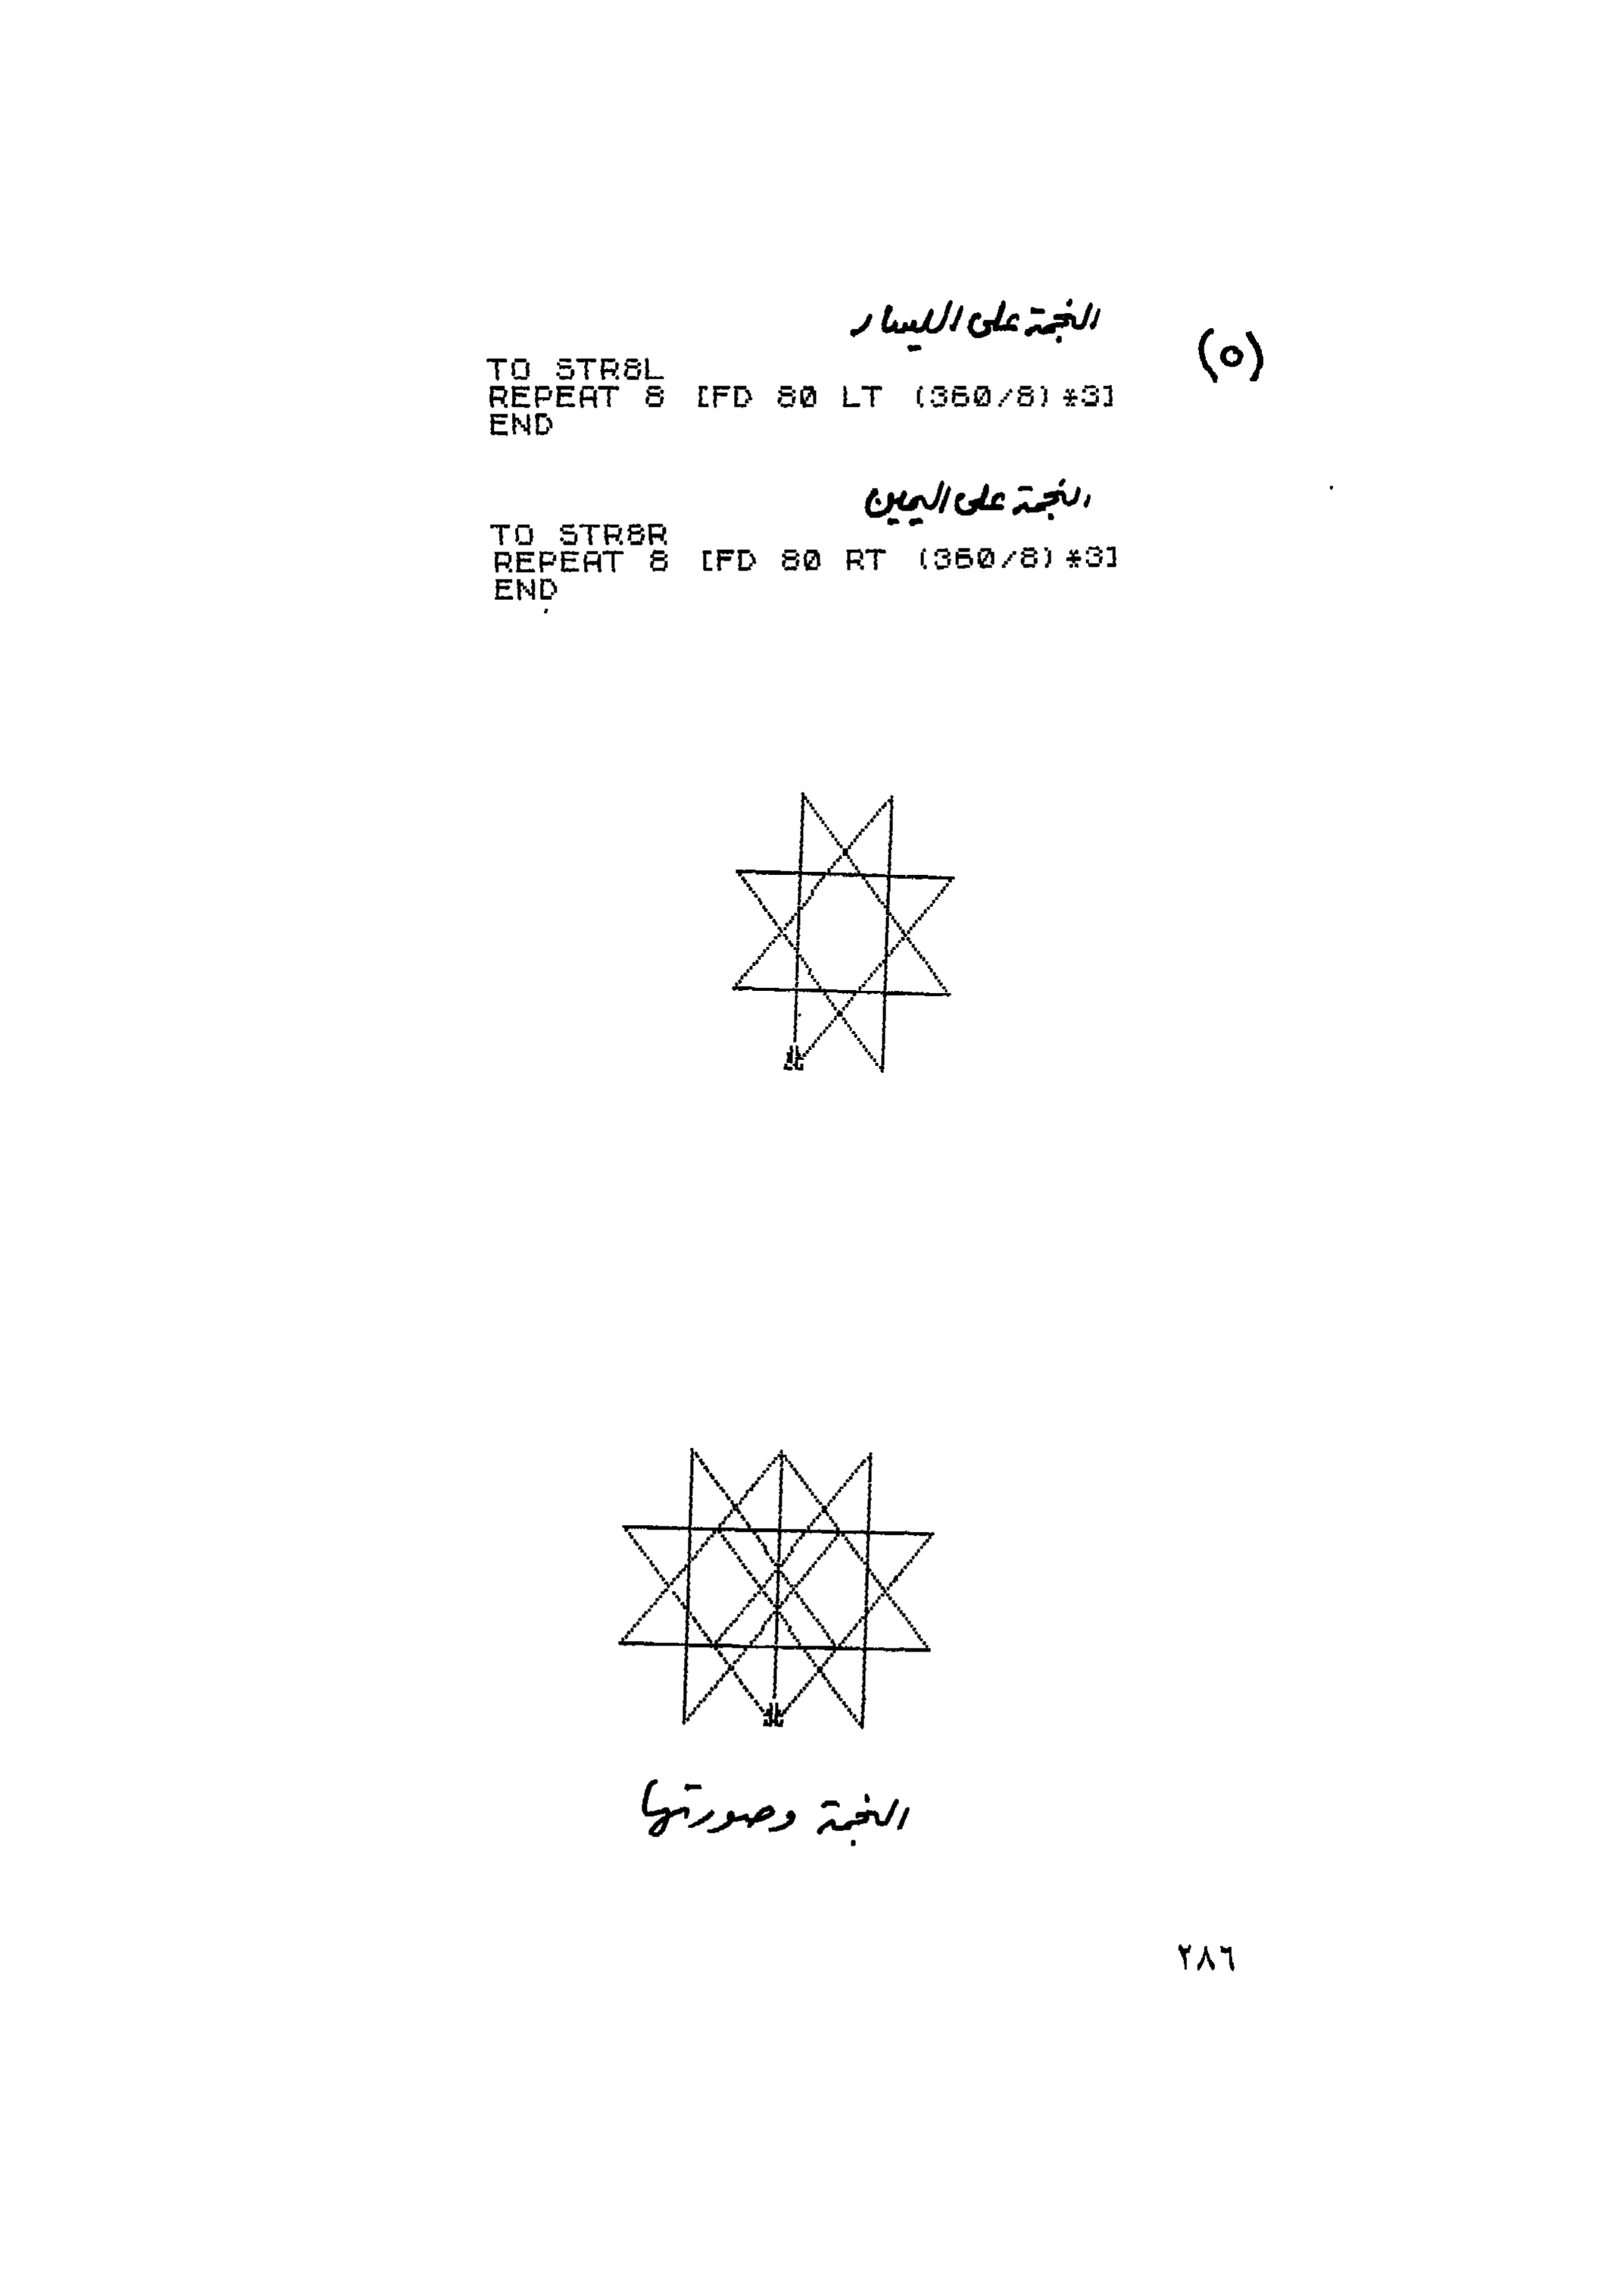 (٥)
النجمة على اليسار
TO STR8L
REPEAT 8 [FD 80 LT (360/8)*3]
END
النجمة على اليمين
TO STR8R
REPEAT 8 [FD 80 RT (360/8)*3]
END
النجمة وصورتها
٢٨٦